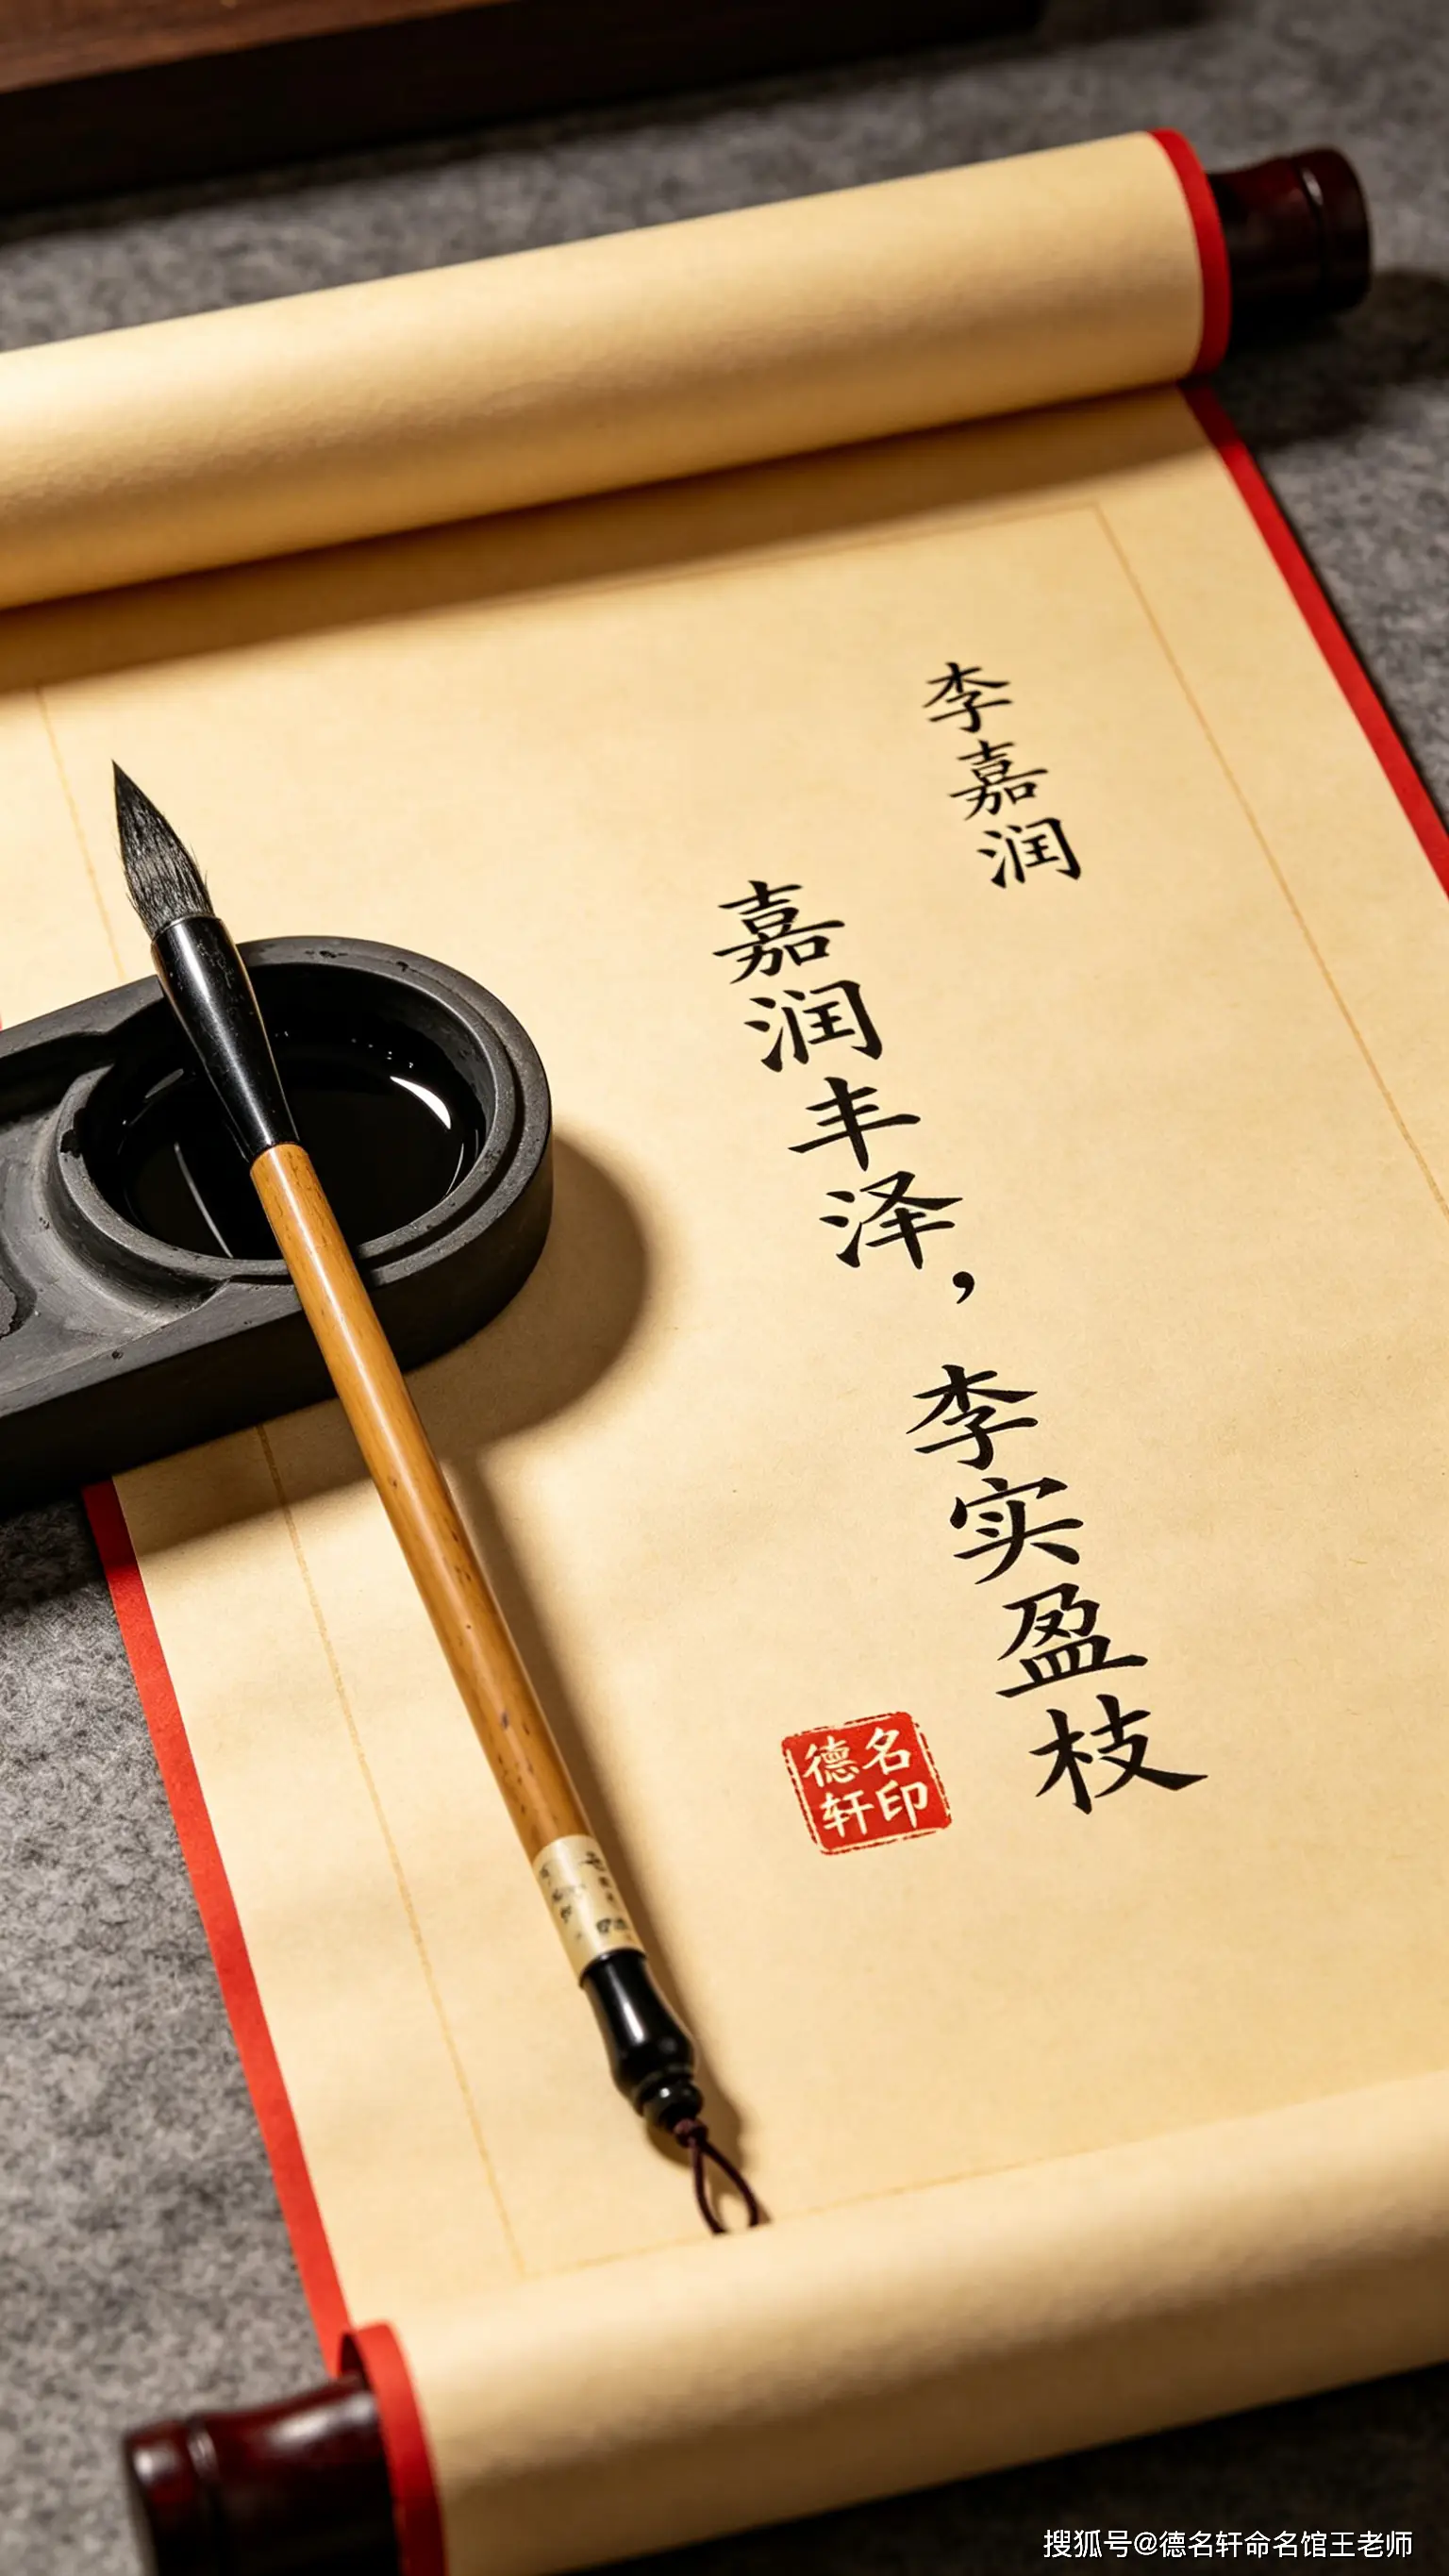 李嘉润
嘉润丰泽，
李实盈枝
德名
轩印
搜狐号@德名轩命名馆王老师